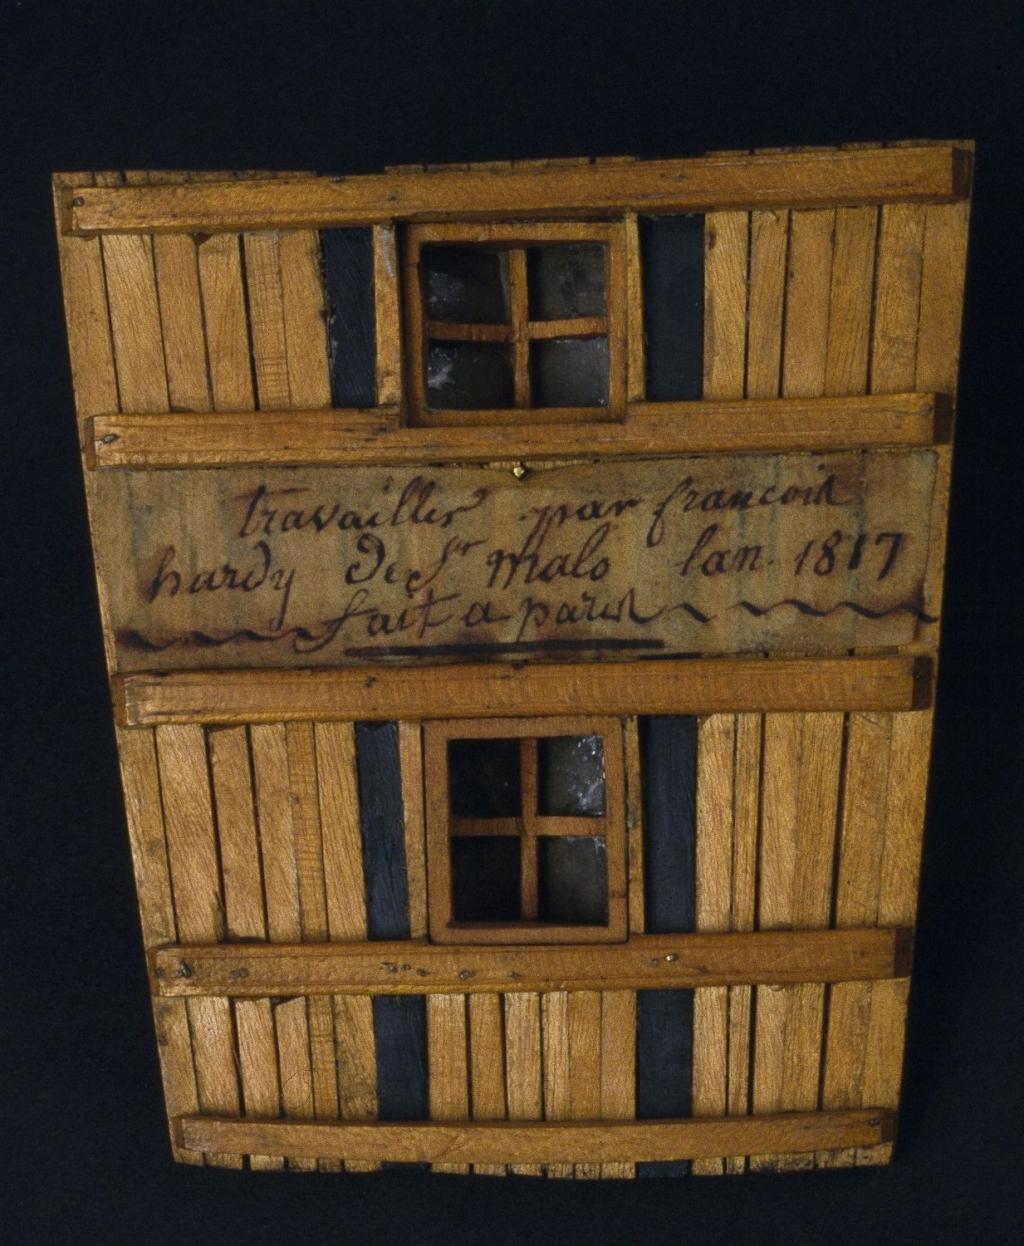 travailler par francois
hardy De St malo lan. 1817
fait a paris